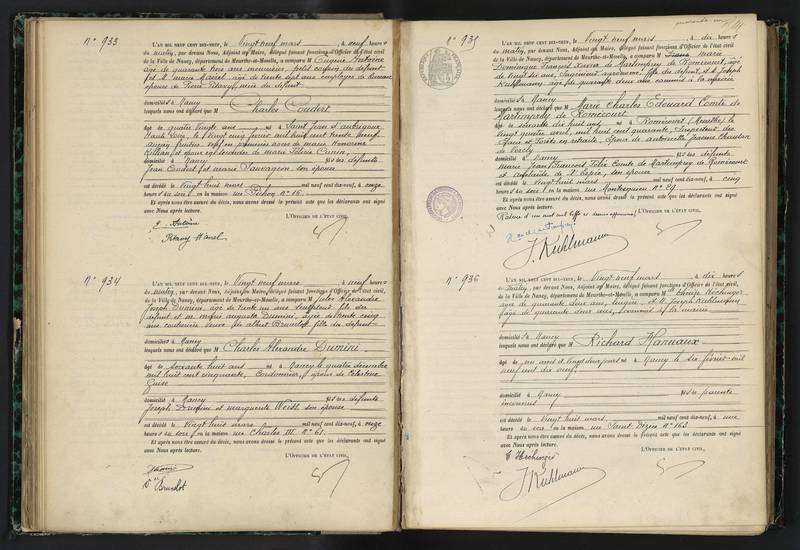 N° 933
L'AN MIL NEUF CENT DIX-NEUF, le Vingt neuf mars, à neuf heures
du matin, par devant Nous, Adjoint au Maire, délégué faisant fonctions d'Officier de l'état civil
de la Ville de Nancy, département de Meurthe-et-Moselle, a comparu M Eugénie Antoine
âgée de quarante trois ans
et M. marie âgé de trente sept ans employée de bureau
épouse de nièce du défunt
domiciliés à Nancy
lesquels nous ont déclaré que M Charles Coudert
âgé de quatre vingts ans né à Saint Jean
le mil huit cent trente neuf
veuf en premières noces de marie Honorine
et époux en secondes de marie Félicie Cunin
domicilié à Nancy fils des défunts
Jean Coudert et marguerite Sauvageon son épouse
est décédé le Vingt huit mars mil neuf cent dix-neuf, à onze
heures du soir en la maison rue Pichon n° 16
Et après nous être assuré du décès, nous avons dressé le présent acte que les déclarants ont signé
avec Nous après lecture.
L'OFFICIER DE L'ÉTAT CIVIL,
Antoine
N° 934
L'AN MIL NEUF CENT DIX-NEUF, le Vingt neuf mars, à neuf heures
du matin, par devant Nous, Adjoint au Maire, délégué faisant fonctions d'Officier de l'état civil,
de la Ville de Nancy, département de Meurthe-et-Moselle, a comparu M Jules Alexandre
Joseph Dumini, âgé de trente un ans sculpteur fils du
défunt et augusta Dumini, âgée de trente cinq
ans couturière veuve de albert Brunclot fille du défunt
domiciliés à Nancy
lesquels nous ont déclaré que M Charles Alexandre Dumini
âgé de soixante huit ans né à Nancy le quatre décembre
mil huit cent cinquante, Cordonnier, époux de Célestine
Guise
domicilié à Nancy fils des défunts
Joseph Dumini et marguerite Weiss son épouse
est décédé le Vingt huit mars mil neuf cent dix-neuf, à onze
heures du soir en la maison rue Charles III n° 61
Et après nous être assuré du décès, nous avons dressé le présent acte que les déclarants ont signé
avec Nous après lecture.
L'OFFICIER DE L'ÉTAT CIVIL,
Dumini
Brunclot
N° 935
L'AN MIL NEUF CENT DIX-NEUF, le Vingt neuf mars, à dix heures
du matin, par devant Nous, Adjoint au Maire, délégué faisant fonctions d'Officier de l'état civil
de la Ville de Nancy, département de Meurthe-et-Moselle, a comparu M marie
Dominique François Xavier de Martimprey de Romécourt, âgé
de vingt six ans, Ingénieur agronome, fils du défunt, et M Joseph
Kuhlmann, âgé de quarante deux ans commis à la mairie
domiciliés à Nancy
lesquels nous ont déclaré que M Marie Charles Edouard Comte de
Martimprey de Romécourt
âgé de soixante dix huit ans né à Romécourt (Meurthe) le
vingt avril, mil huit cent quarante, Inspecteur des
Eaux et Forêts en retraite, époux de antoinette Jeanne
de
domicilié à Nancy fils des défunts
marie Jean François Félix Comte de Martimprey de Romécourt
et son épouse
est décédé le Vingt huit mars mil neuf cent dix-neuf, à cinq
heures du soir en la maison rue Montesquieu n° 29
Et après nous être assuré du décès, nous avons dressé le présent acte que les déclarants ont signé
avec Nous après lecture.
L'OFFICIER DE L'ÉTAT CIVIL,
J. Kuhlmann
N° 936
L'AN MIL NEUF CENT DIX-NEUF, le Vingt neuf mars, à dix heures
du matin, par devant Nous, Adjoint au Maire, délégué faisant fonctions d'Officier de l'état civil
de la Ville de Nancy, département de Meurthe-et-Moselle, a comparu M Hechinger
âgée de quarante deux ans, lingère et M. Joseph Kuhlmann
âgé de quarante deux ans, commis à la mairie
domiciliés à Nancy
lesquels nous ont déclaré que M Richard Hannaux
âgé de un mois et vingt deux jours né à Nancy le six février mil
neuf cent dix neuf
domicilié à Nancy fils de parents
inconnus
est décédé le Vingt huit mars mil neuf cent dix-neuf, à une
heure du soir en la maison rue Saint Dizier n° 163
Et après nous être assuré du décès, nous avons dressé le présent acte que les déclarants ont signé
avec Nous après lecture.
L'OFFICIER DE L'ÉTAT CIVIL,
Hechinger
J. Kuhlmann